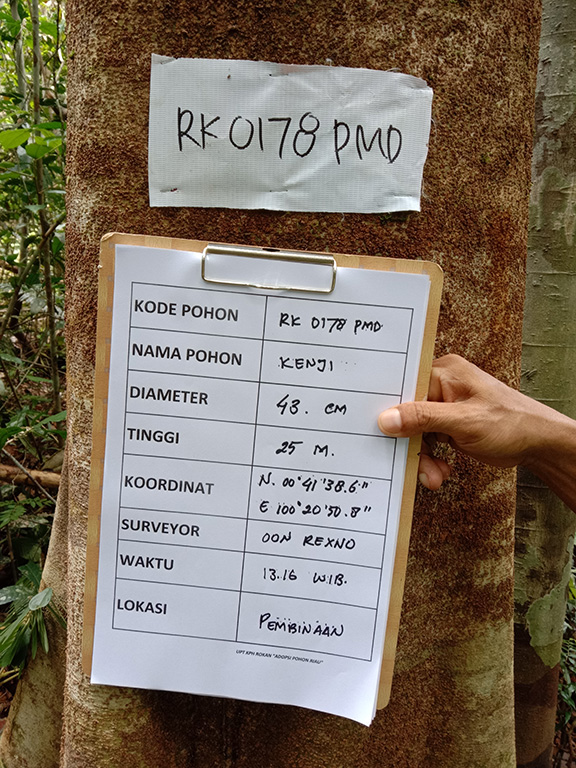 RK 0178 PMD
KODE POHON RK 0178 PMD
NAMA POHON KENJI
DIAMETER 43. CM
TINGGI 25 M.
KOORDINAT N. 00°41'38.6"
E 100°20'50.8"
SURVEYOR OON REXNO
WAKTU 13.16 WIB.
LOKASI PEMBINAAN
UPT KPH ROKAN "ADOPSI POHON RIAU"